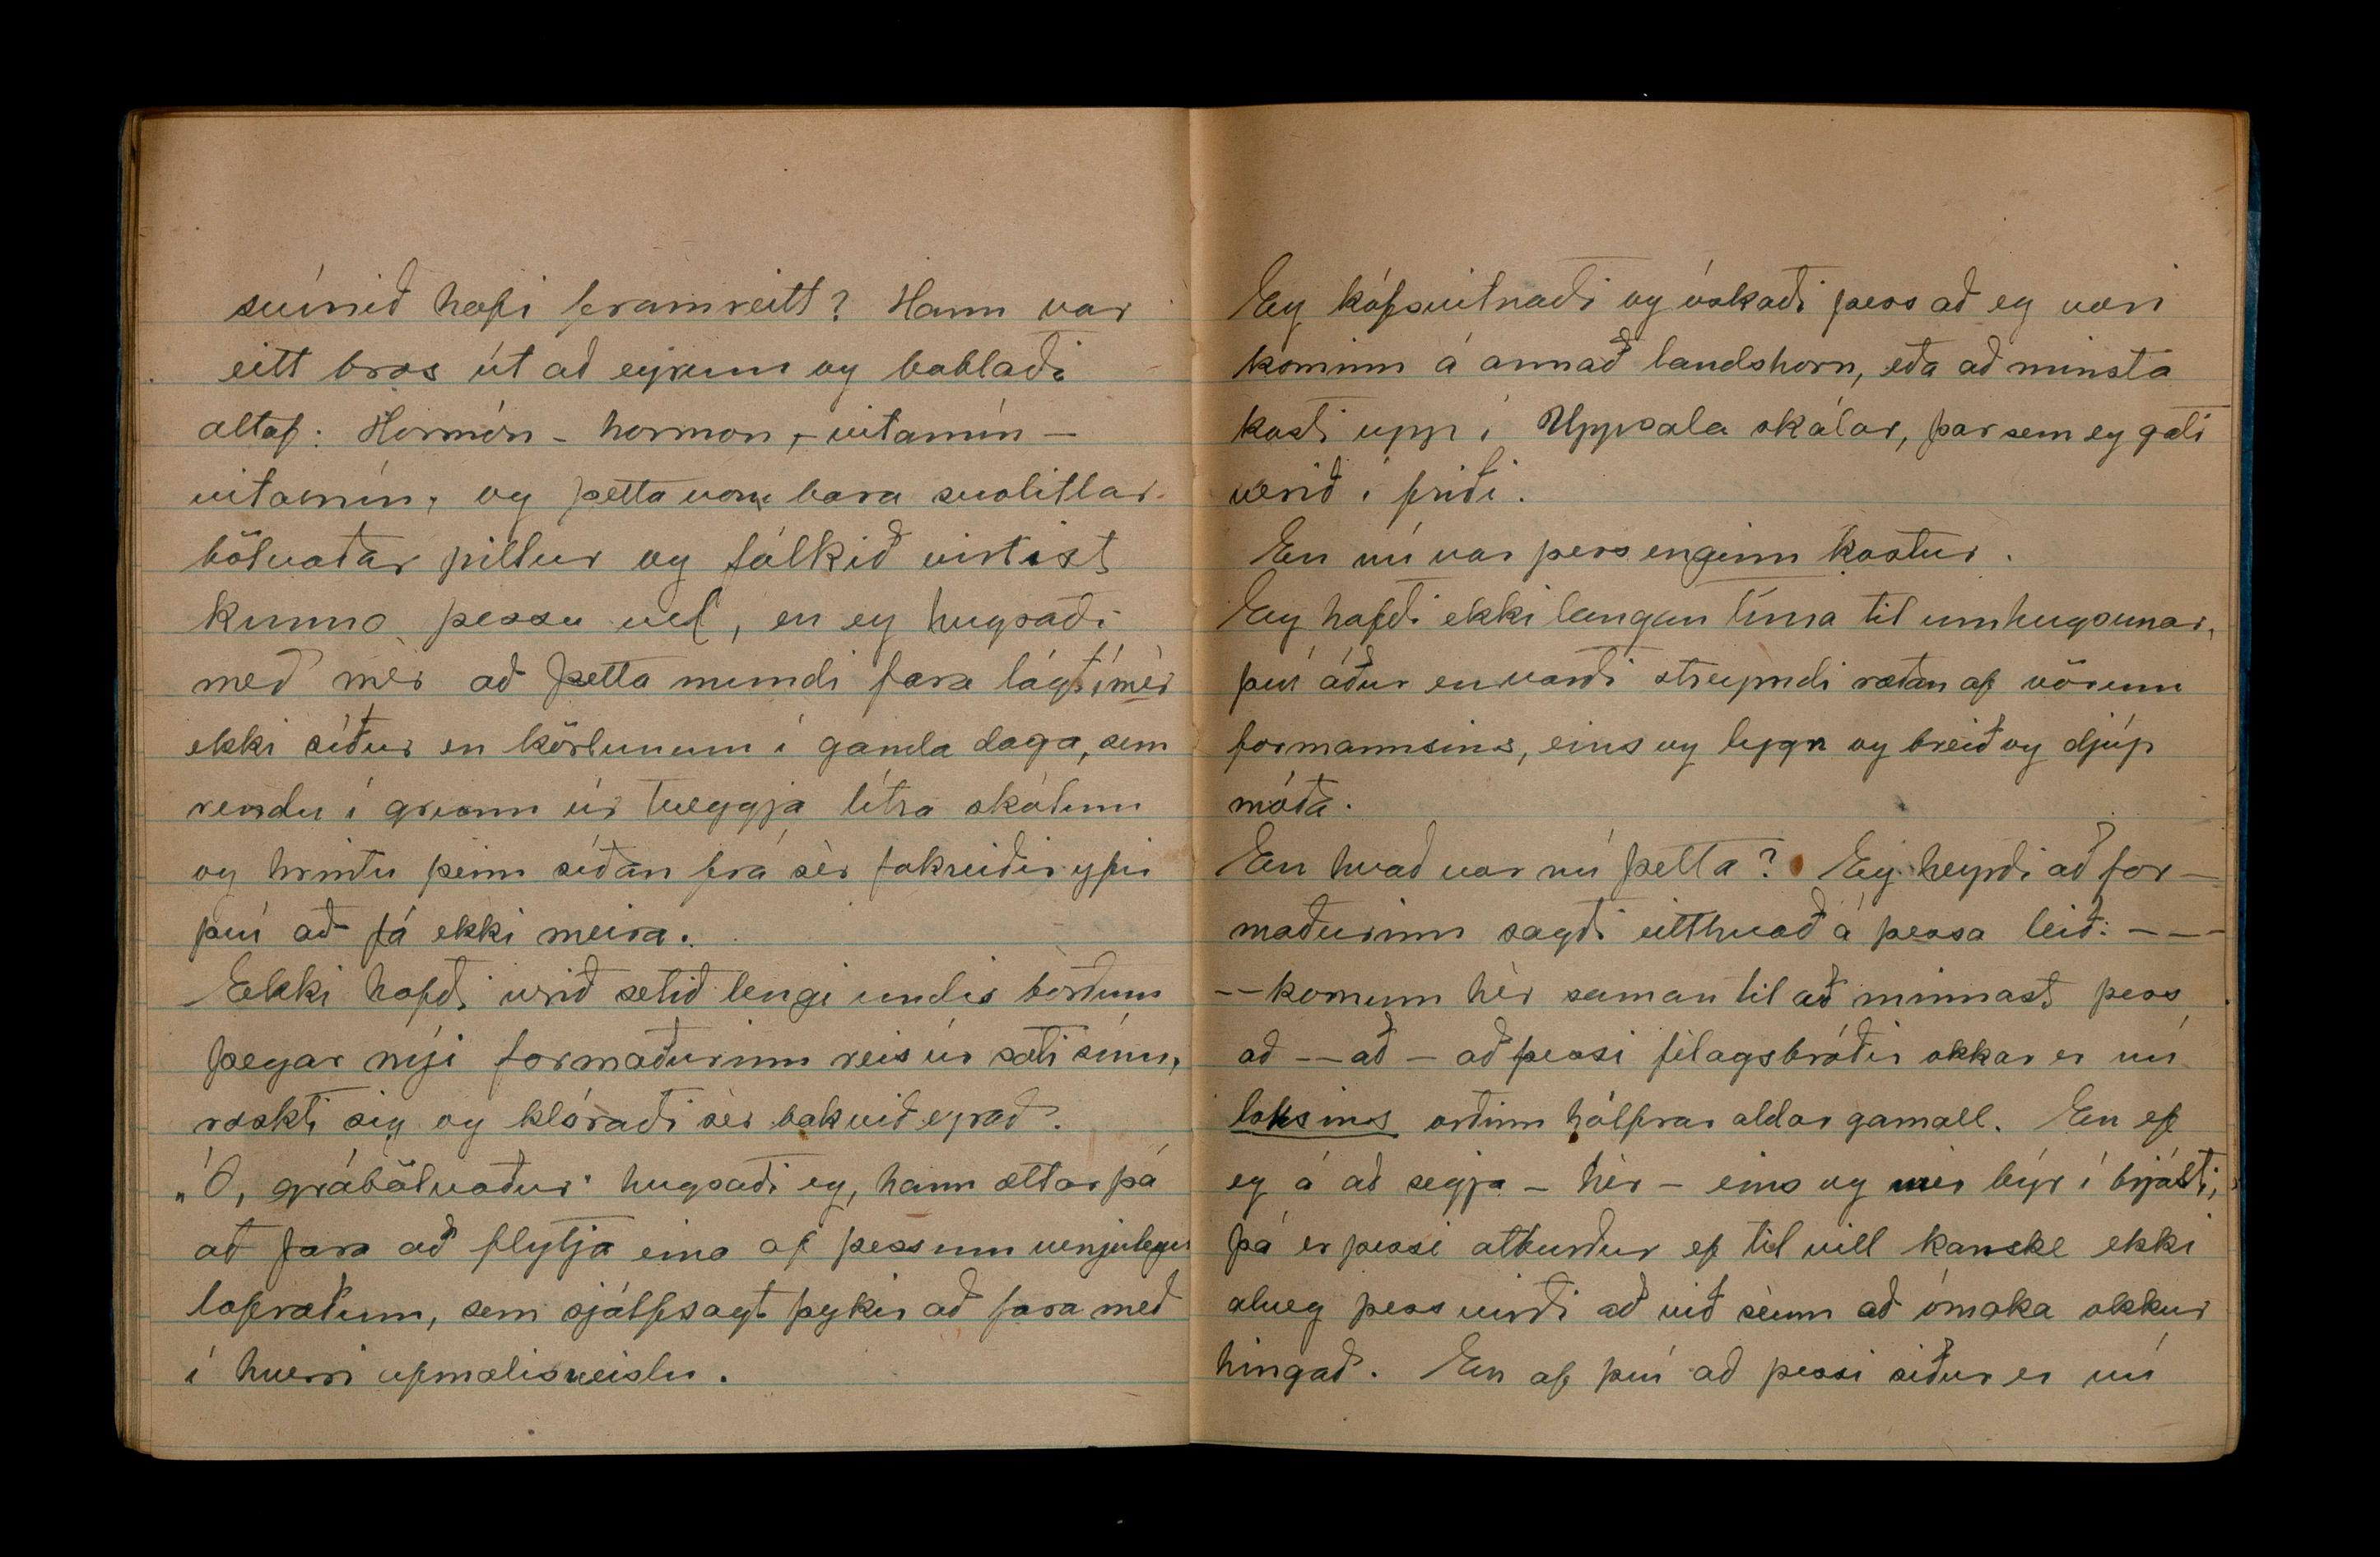 svínið hafi framreitt? Hann var
eitt bros út að eyrum og bablaði
altaf: Hormón - hormon, - vitamín -
vitamín, og þetta voru bara svolitlar
bölvaðar pillur og fólkið virtist
kunna þessu vel, en eg hugsaði
með mèr að þetta mundi fara lágt í mèr
ekki síður en körlunum í gamla daga, sem
rendu í grunn úr tveggja lítra skálum
og hrintu þeim síðan frá sèr fokreiðir yfir
því að fá ekki meira.
Ekki hafði verið setið lengi undir borðum
þegar nýi formaðurinn reis úr sæti sínu,
ræskti sig og klóraði sèr bakvið eyrað.
„Ó, grábölvaður" hugsaði eg, hann ættar þá
að fara að flytja eina af þessum venjulegu
lofræðum, sem sjálfsagt þykir að fara með
í hverri afmælisveislu.
Eg kófsvitnaði og óskaði þess að eg væri
kominn á annað landshorn, eða að minsta
kosti upp í Uppsala skálar, þar sem eg gæti
verið í friði.
En nú var þess enginn kostur.
Eg hafði ekki langan tíma til umhugsunar,
því áður en varði streymdi ræðan af vörum
formannsins, eins og lygn og breið og djúp
móða.
En hvað var nú þetta? Eg heyrði að for-
maðurinn sagði eitthvað á þessa leið: - - -
-- komum hèr saman til að minnast þess
að -- að - að þessi fèlagsbróðir okkar er nú
loksins orðinn hálfrar aldar gamall. En ef
eg á að segja - hèr - eins og mèr býr í brjósti,
þá er þessi atburður ef til vill kanske ekki
alveg þess virði að við sèum að ómaka okkur
hingað. En af því að þessi siður er nú